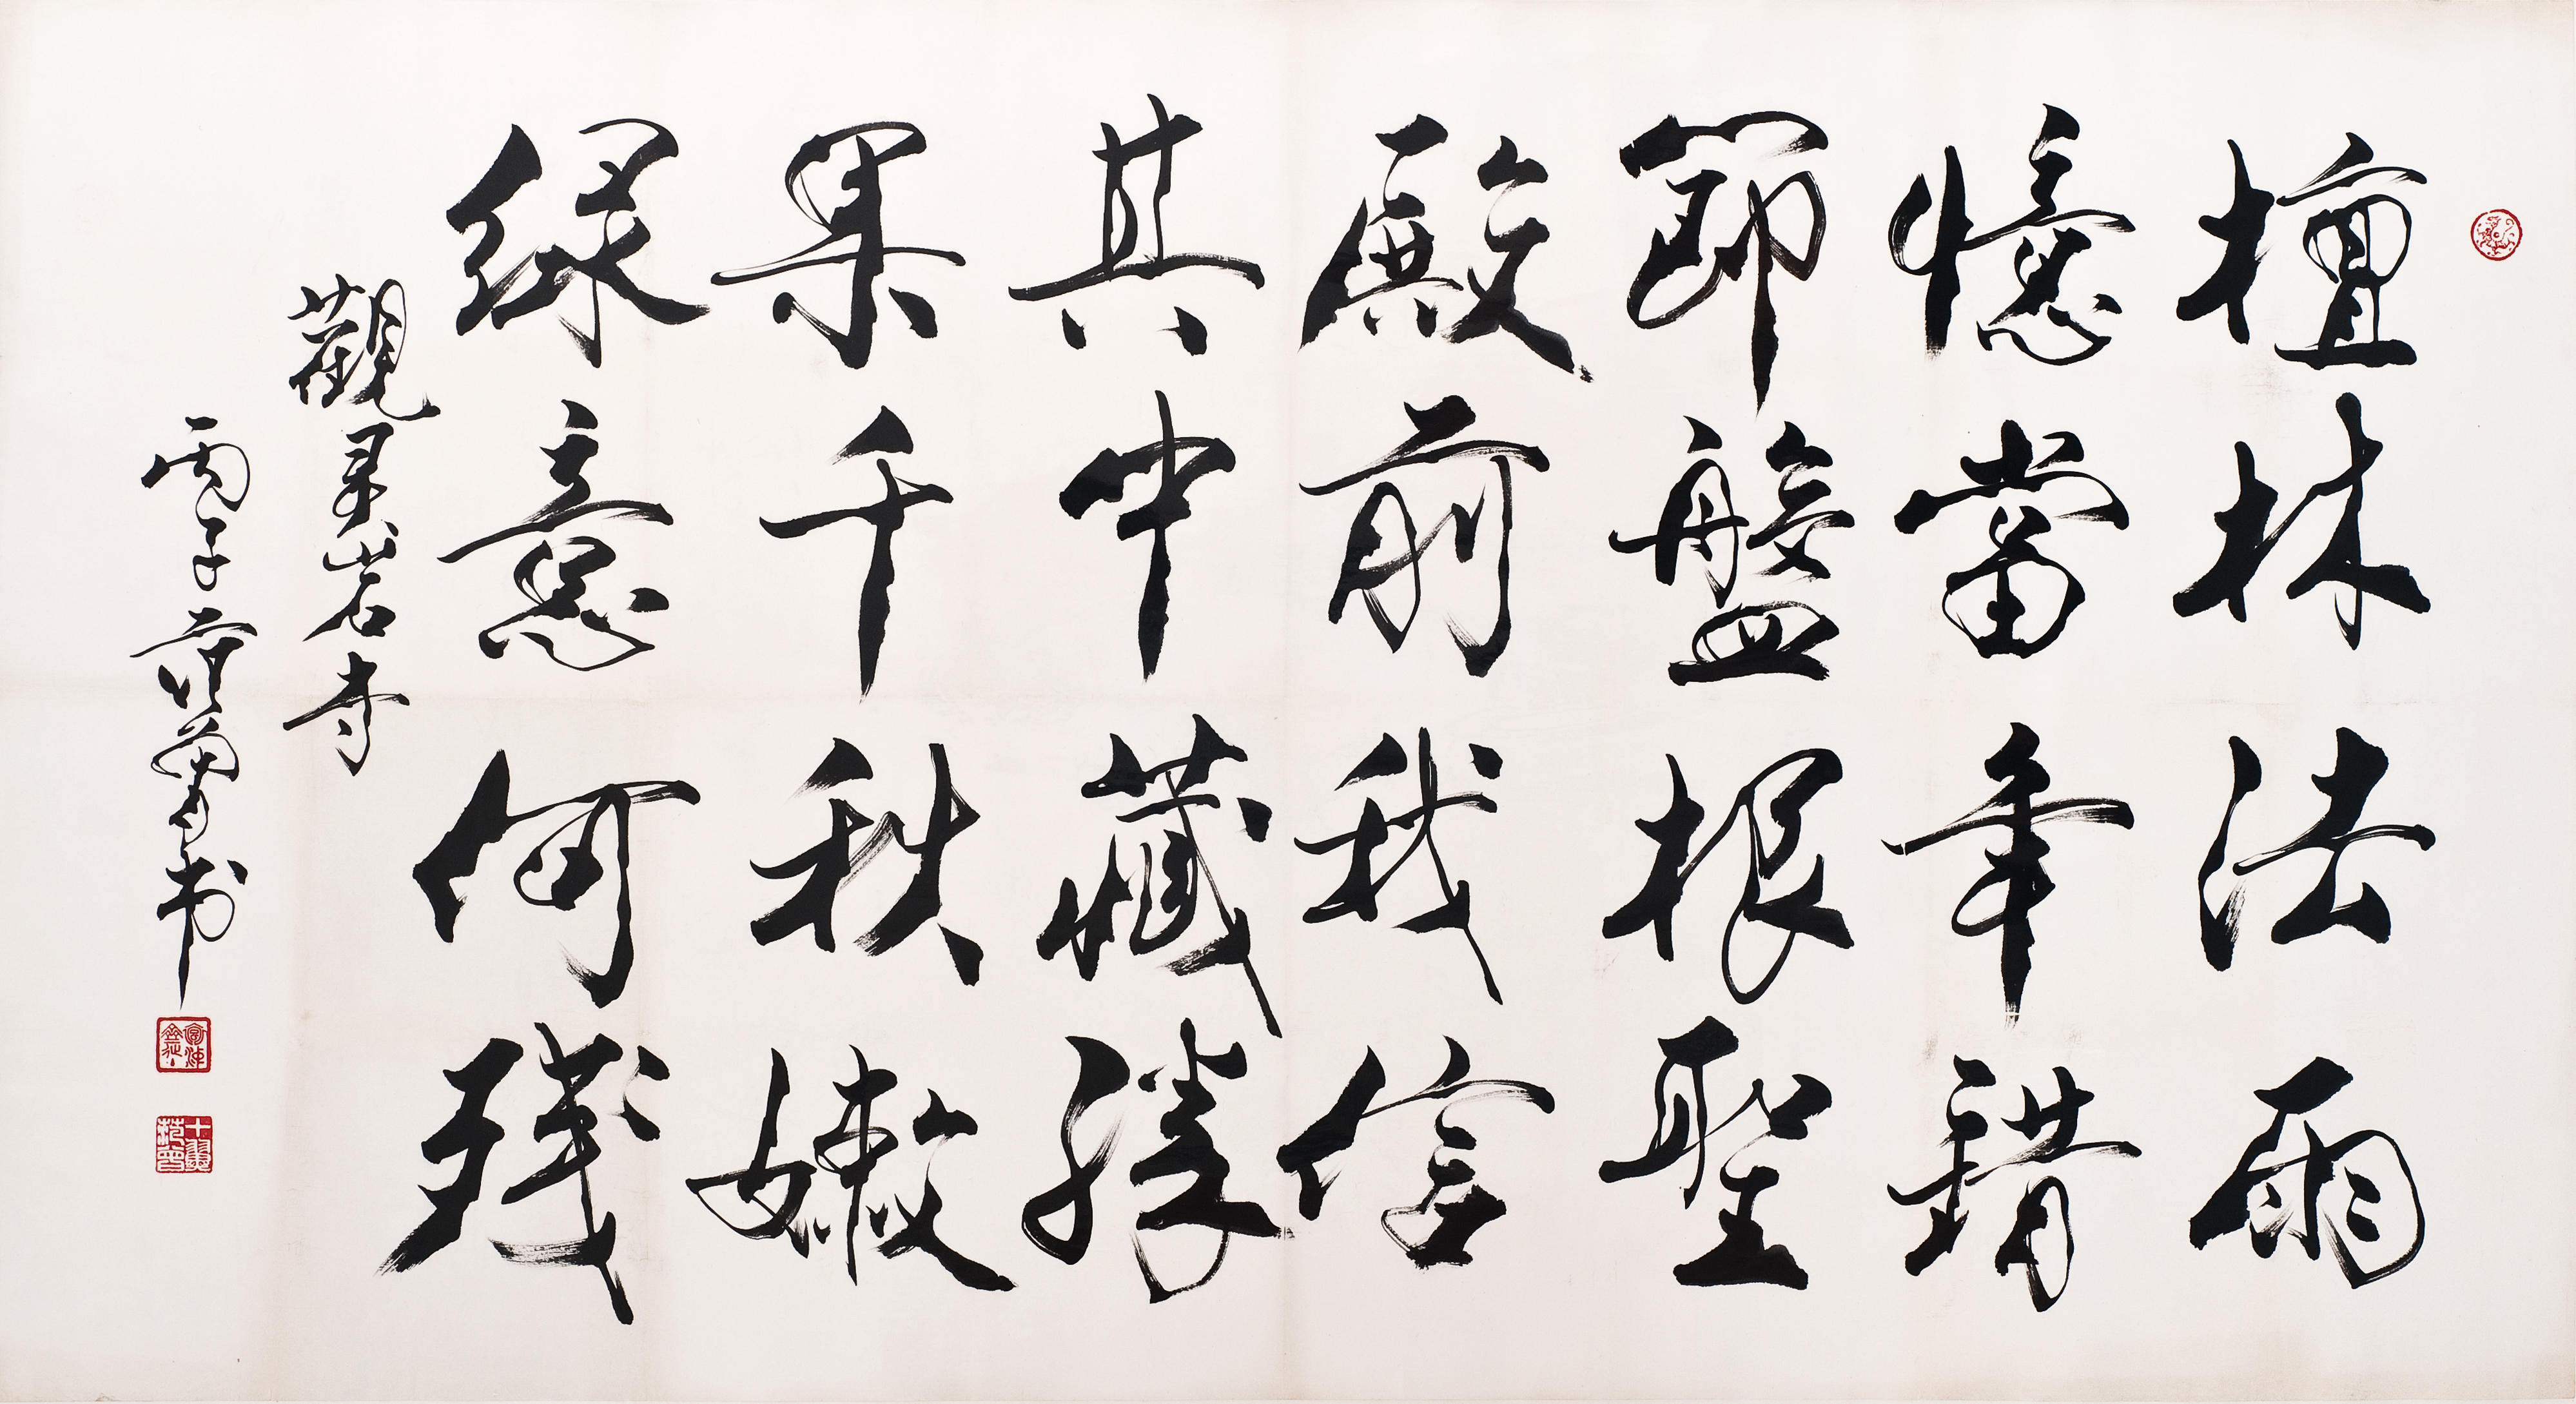 檀林法雨
憶當年錯
節盤根聖
殿前我信
其中藏勝
果千秋嫩
绿意何殘
觀灵岩寺
丙子范曾书